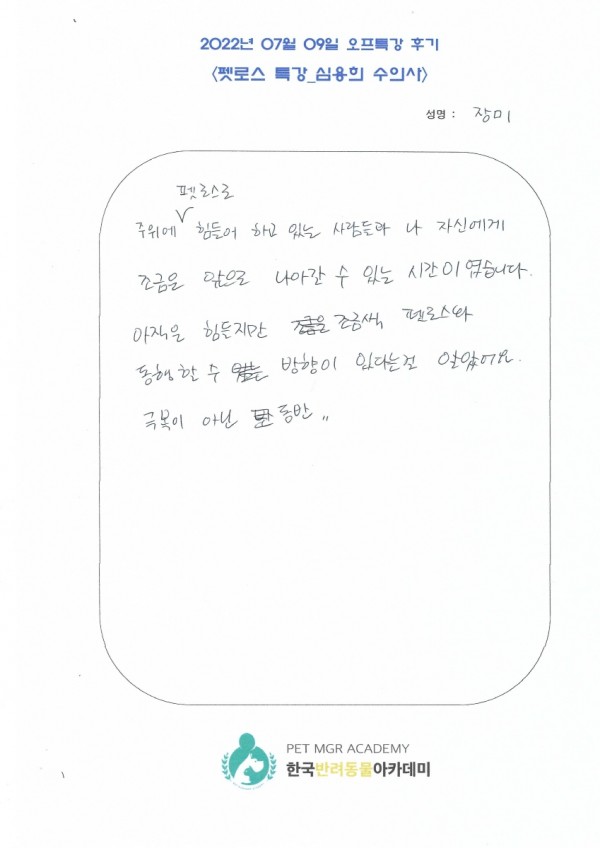 2022년 07월 09일 오프특강 후기
<펫로스 특강_심용희 수의사>
성명 : 장미
펫로스로
주위에 힘들어 하고 있는 사람들과 나 자신에게
조금은 앞으로 나아갈 수 있는 시간이 였습니다.
아직은 힘들지만 조금씩 펫로스와
동행할 수 있는 방향이 있다는걸 알았어요.
극복이 아닌 동반..
PET MGR ACADEMY
한국반려동물아카데미